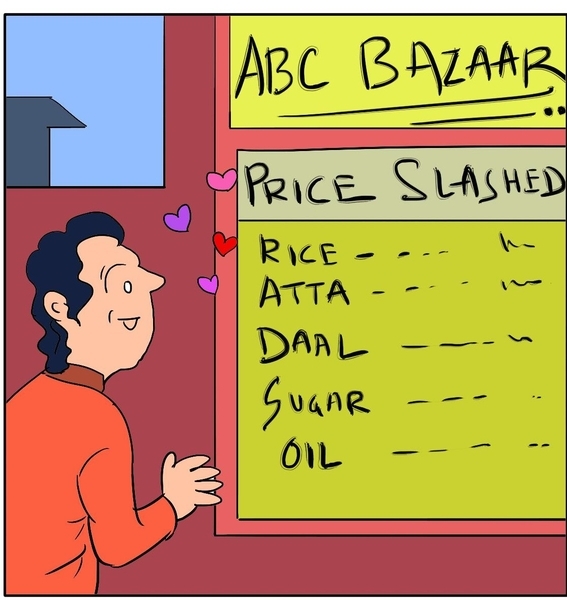 ABC BAZAAR
PRICE SLASHED
RICE
ATTA
DAAL
SUGAR
OIL